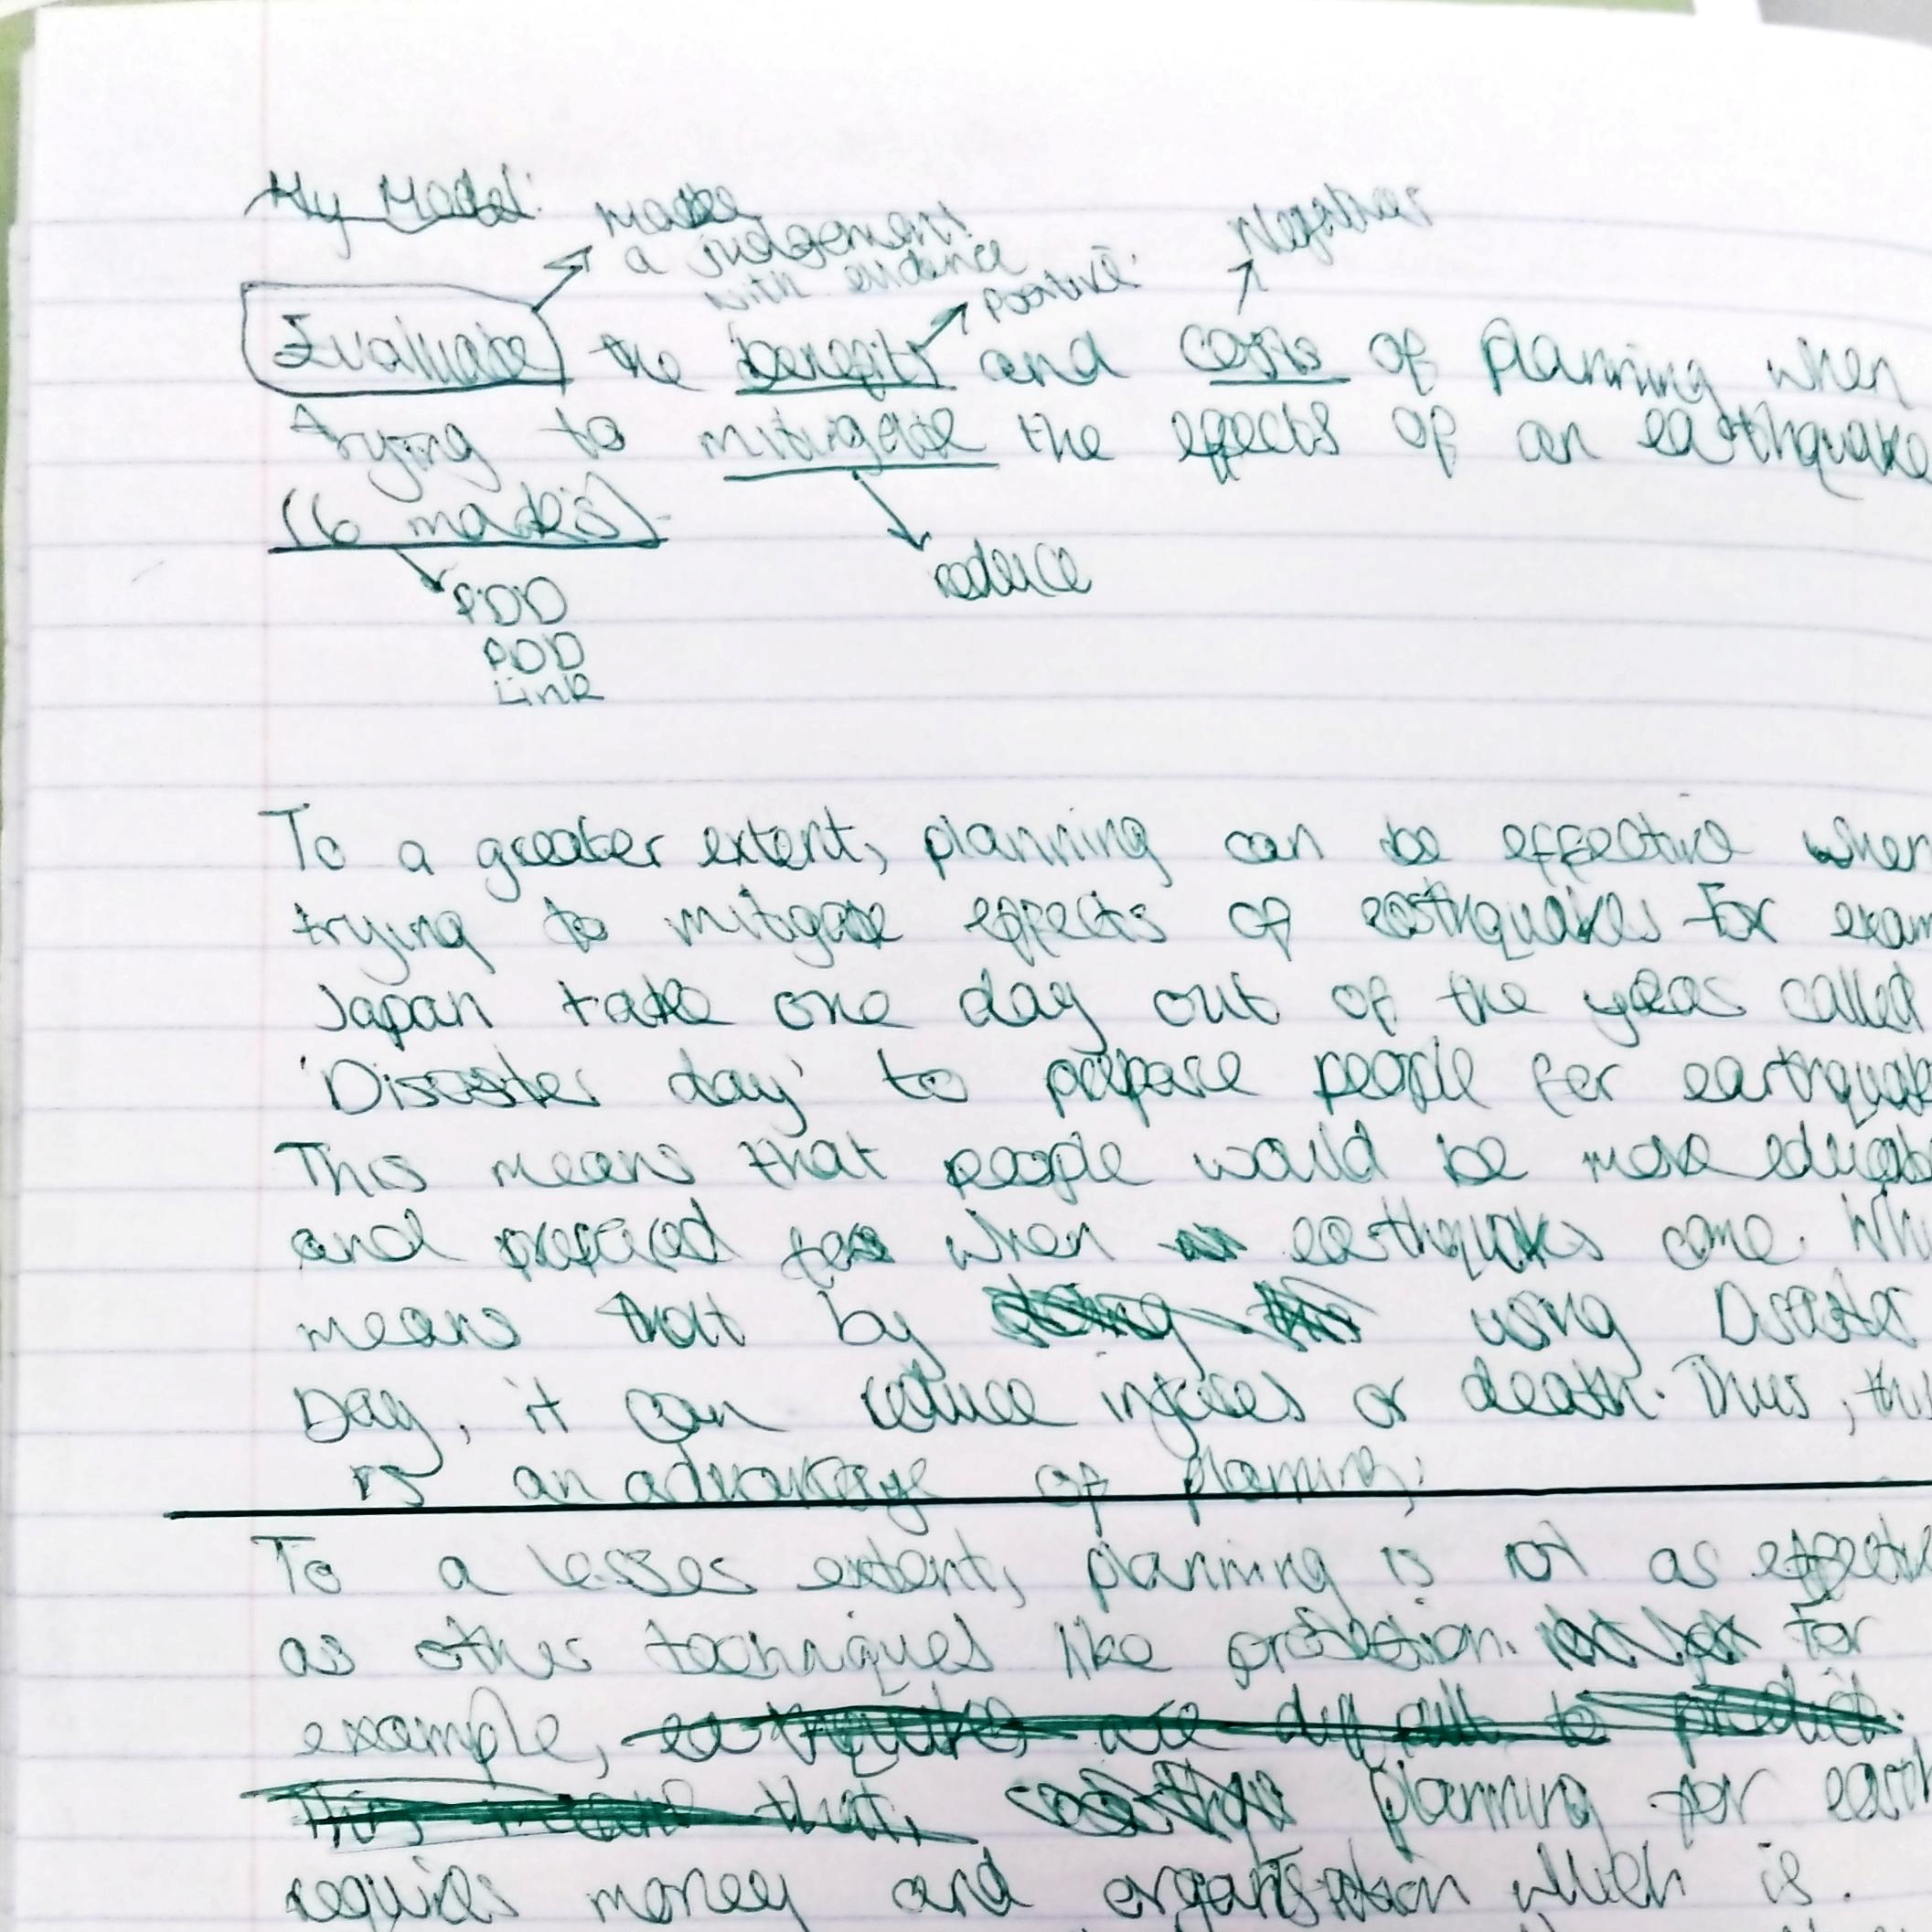 My Model:
make
a judgement
with evidence
positive
Negatives
Evaluate the benefits and costs of planning when
trying to mitigate the effects of an earthquake
(6 marks).
reduce
PDD
PDD
Link
To a greater extent, planning can be effective when
trying to mitigate effects of earthquakes For exam
Japan take one day out of the year called
'Disaster day' to prepare people for earthquake
This means that people would be more educat
and prepared for when earthquakes come. Whi
means that by doing this using Disaster
Day, it can reduce injuries or death. Thus, this
is an advantage of planning.
To a lesser extent, planning is not as effecti
as other techniques like protection. For
example, earthquakes are difficult to predict.
This means that, planning for earth
requires money and organisation which is.